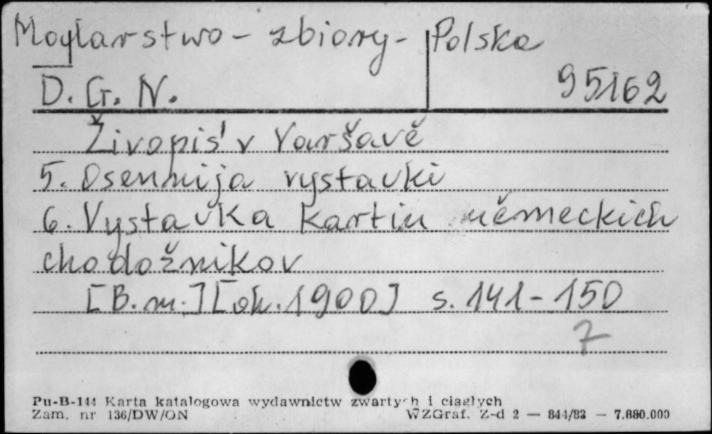 Moylarstwo - zbiory - Polska
D. G. N. 95162
Živopiś v Varšavě
5. Osennija vystavki
6. Vystavka kartin německich
chodožnikov
[B.m.] [ok. 1900] s. 141-150
7
Pu-B-144 Karta katalogowa wydawnictw zwartych i ciągłych
Zam. nr 136/DW/ON WZGraf. Z-d 2 — 844/83 — 7.880.000